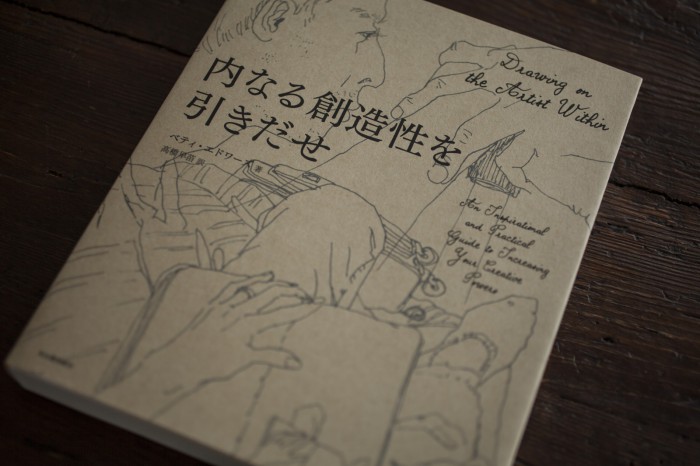 Drawing on
the Artist Within
内なる創造性を
引きだせ
ベティ・エドワーズ 著
高橋早苗 訳
An Inspirational
and Practical
Guide to Increasing
Your Creative
Powers